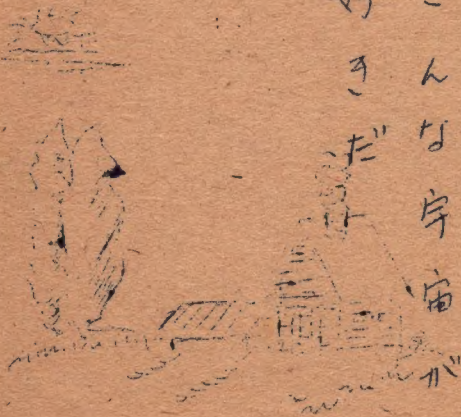 こんな宇宙が
きだ